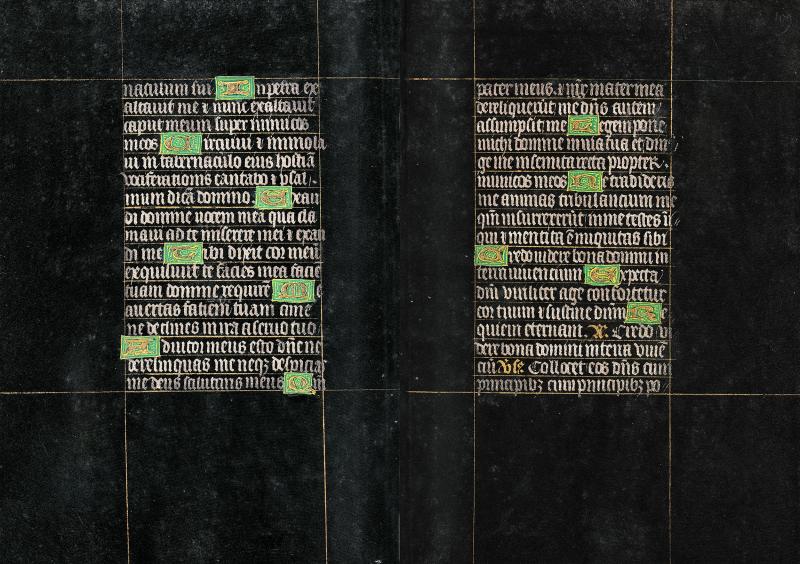 naculum sui In petra ex
altauit me ⁊ nunc exaltauit
caput meum super inimicos
meos Circuiui ⁊ immola
ui in tabernaculo eius hostiā
vociferationis cantabo ⁊ psal
mum dicā domino. Exau
di domine uocem meā qua cla
maui ad te miserere mei ⁊ exau
di me Tibi dixit cor meū
exquisiuit te facies mea facie
tuam domine requirā Ne
auertas faciem tuam a me
ne declines in ira a seruo tuo
Adiutor meus esto dn̄e ne
derelinquas me neqꝫ despicias
me deus salutaris meus Qm̄
pater meus ⁊ mater mea
dereliquerūt me dn̄s autem
assumpsit me Legem pone
michi domine in uia tua et diri
ge me in semita recta propter
inimicos meos Ne tradideris
me in animas tribulancium me
qm̄ insurrexerūt in me testes i
qui ⁊ mentita ē iniquitas sibi
Credo uidere bona domini in
terra uiuencium Expecta
dn̄m viriliter age confortetur
cor tuum ⁊ sustine dn̄m Re
quiem eternam. A. Credo vi
dere bona domini in terra viuē
ciū Vs̄. Collocet eos dn̄s cum
principibꝫ cum principibꝫ po